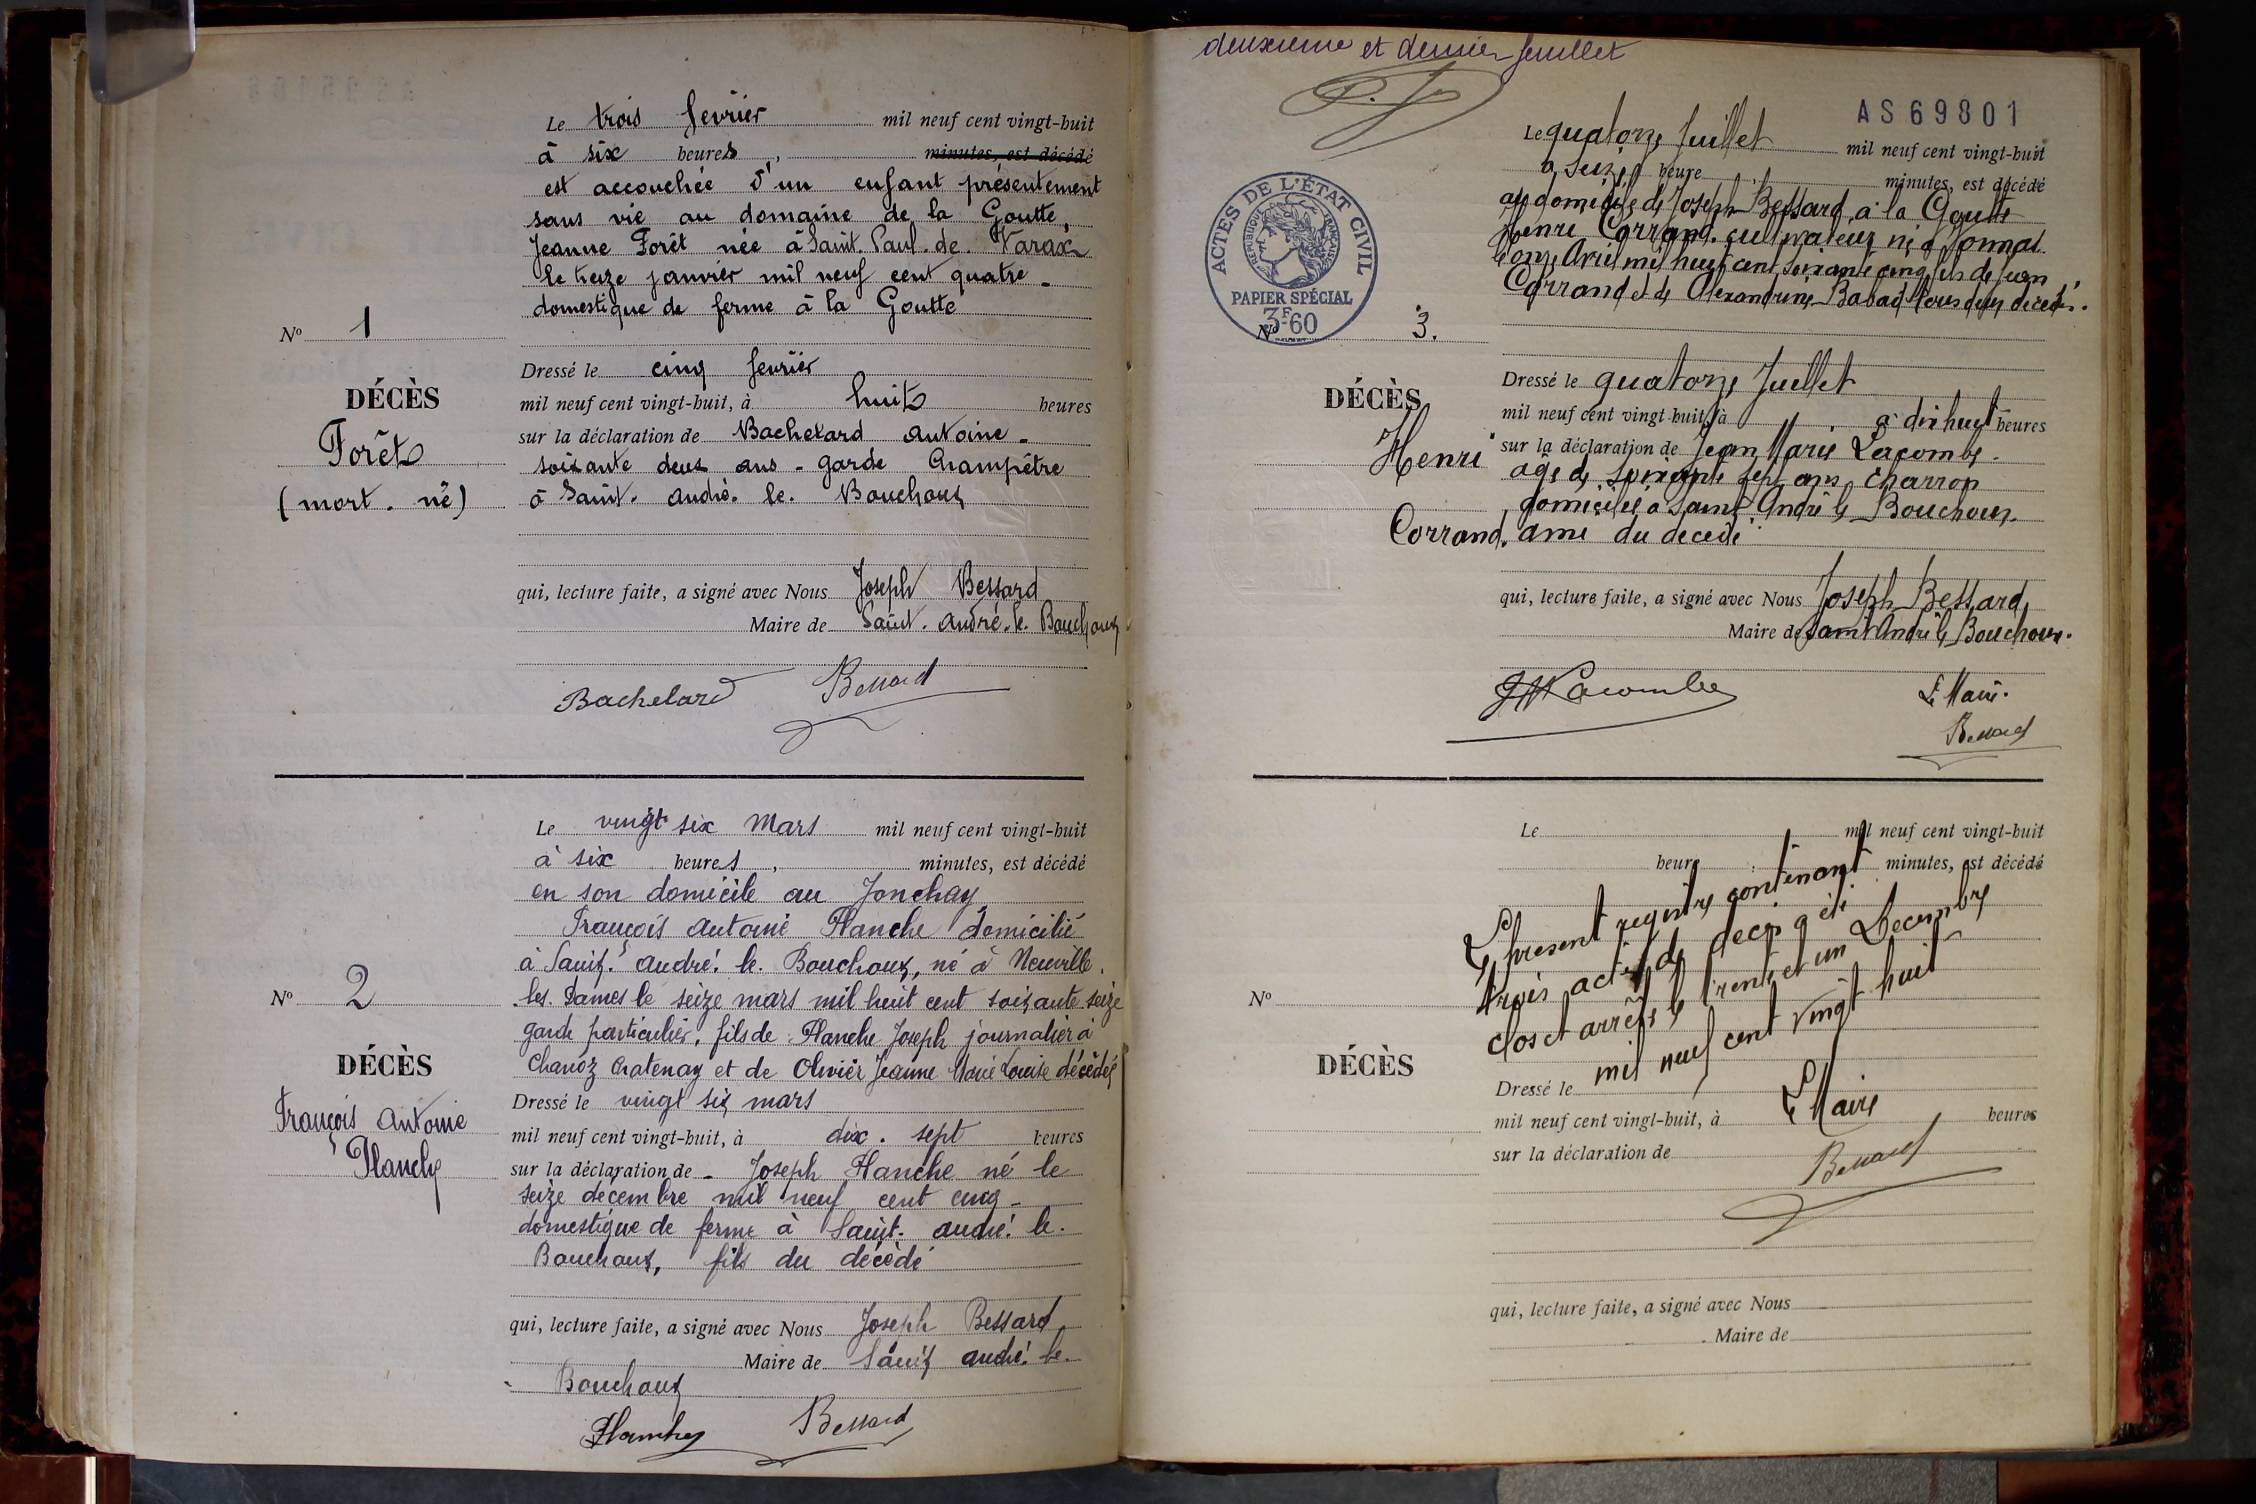 Le trois février mil neuf cent vingt-huit
à six heures, minutes, est décédé
est accouchée d'un enfant présentement
sans vie au domaine de la Goutte,
Jeanne Forêt née à Saint Paul. de. Varax
le treize janvier mil neuf cent quatre -
domestique de ferme à la Goutte
No 1
DÉCÈS
Forêt
(mort. né)
Dressé le cinq fevrier
mil neuf cent vingt-huit, à huit heures
sur la déclaration de Bachelard antoine -
soixante deux ans - garde champêtre
à Saint. andré. le. Bouchoux
qui, lecture faite, a signé avec Nous Joseph Bessard
Maire de Saint. andré. le. Bouchoux
Bachelard Bessard
Le vingt six Mars mil neuf cent vingt-huit
à six heures, minutes, est décédé
en son domicile au Jonchay
François antoine Planche domicilié
à Saint. andré. le. Bouchoux, né à Neuville.
les. Dames le seize mars mil huit cent soixante seize
garde particulier, fils de Planche Joseph journalier à
Chanoz Chatenay et de Olivier Jeanne Marie Louise décédés
No 2
DÉCÈS
François Antoine
Planche
Dressé le vingt six mars
mil neuf cent vingt-huit, à dix. sept heures
sur la déclaration de - Joseph Planche né le
seize décembre mil neuf cent cinq -
domestique de ferme à Saint. andré. le.
Bouchoux, fils du décédé
qui, lecture faite, a signé avec Nous Joseph Bessard
Maire de Saint andré. le.
Bouchoux
Planche Bessard
deuxieme et dernier feuillet
AS69801
ACTES DE L'ÉTAT CIVIL
RÉPUBLIQUE FRANÇAISE
PAPIER SPÉCIAL
3F60
Le quatorze Juillet mil neuf cent vingt-huit
a Seize heure minutes, est décédé
au domicile de Joseph Bessard à la Goutte
Henri Corrand. cultivateur né à
le onze Avril mil huit cent soixante cinq fils de Jean
Corrand et de Alexandrine Babad tous deux décédés.
No 3.
DÉCÈS
Henri
Corrand.
Dressé le quatorze Juillet
mil neuf cent vingt-huit, à à dix huit heures
sur la déclaration de Jean Marie Lacombe.
âgé de soixante sept ans Charron
domicilié à Saint André le Bouchoux.
ami du decede
qui, lecture faite, a signé avec Nous Joseph Bessard,
Maire de Saint André le Bouchoux.
JM Lacombe
Le Maire.
Bessard
Le mil neuf cent vingt-huit
heure minutes, est décédé
Le présent registre contenant
trois actes de deces a été
clos et arrêté le trente et un Decembre
mil neuf cent vingt huit
Le Maire
Bessard
No
DÉCÈS
Dressé le
mil neuf cent vingt-huit, à heures
sur la déclaration de
qui, lecture faite, a signé avec Nous
Maire de